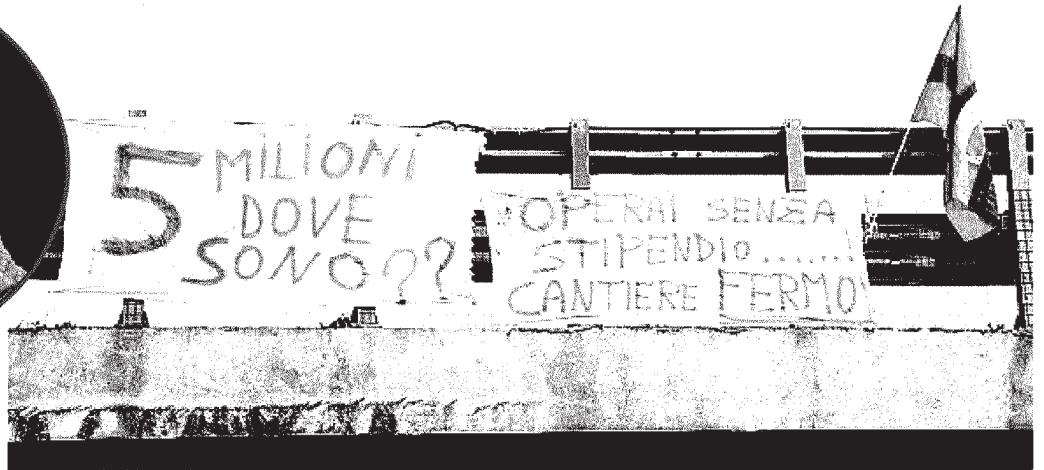 5 MILIONI
DOVE
SONO??
OPERAI SENZA
STIPENDIO.......!
CANTIERE FERMO